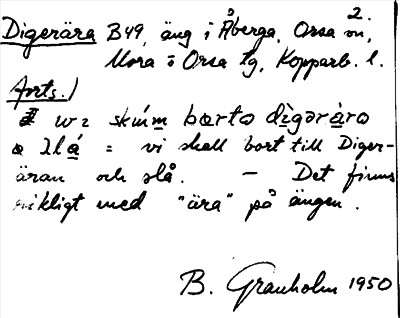 2.
Digerära B49, äng i Åberga, Orsa sn,
Mora o Orsa tg, Kopparb. l.
forts.)
wɩ skúm borto dìgəràro
o Ilá = vi skall bort till Diger-
äran och slå. – Det finns
rikligt med "ära" på ängen.
B. Granholm 1950